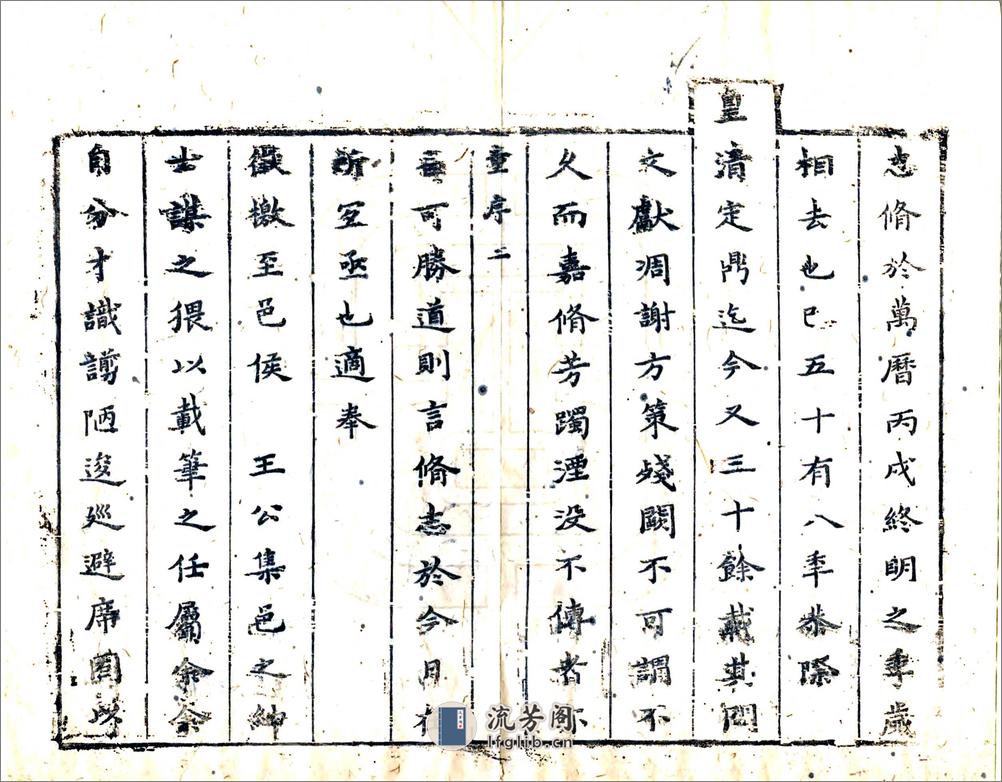 志脩於萬曆丙戌終明之季歲
相去也已五十有八年恭際
皇清定鼎迄今又三十餘載其間
文獻凋謝方策殘闕不可謂不
久而嘉脩芳躅湮没不傳者不
重序 二
可勝道則言脩志於今日有
所宜亟也適奉
徵檄至邑侯 王公集邑之紳
士謀之猥以載筆之任屬余余
自分才識謭陋逡巡避席固
流芳阁
lfglib.cn